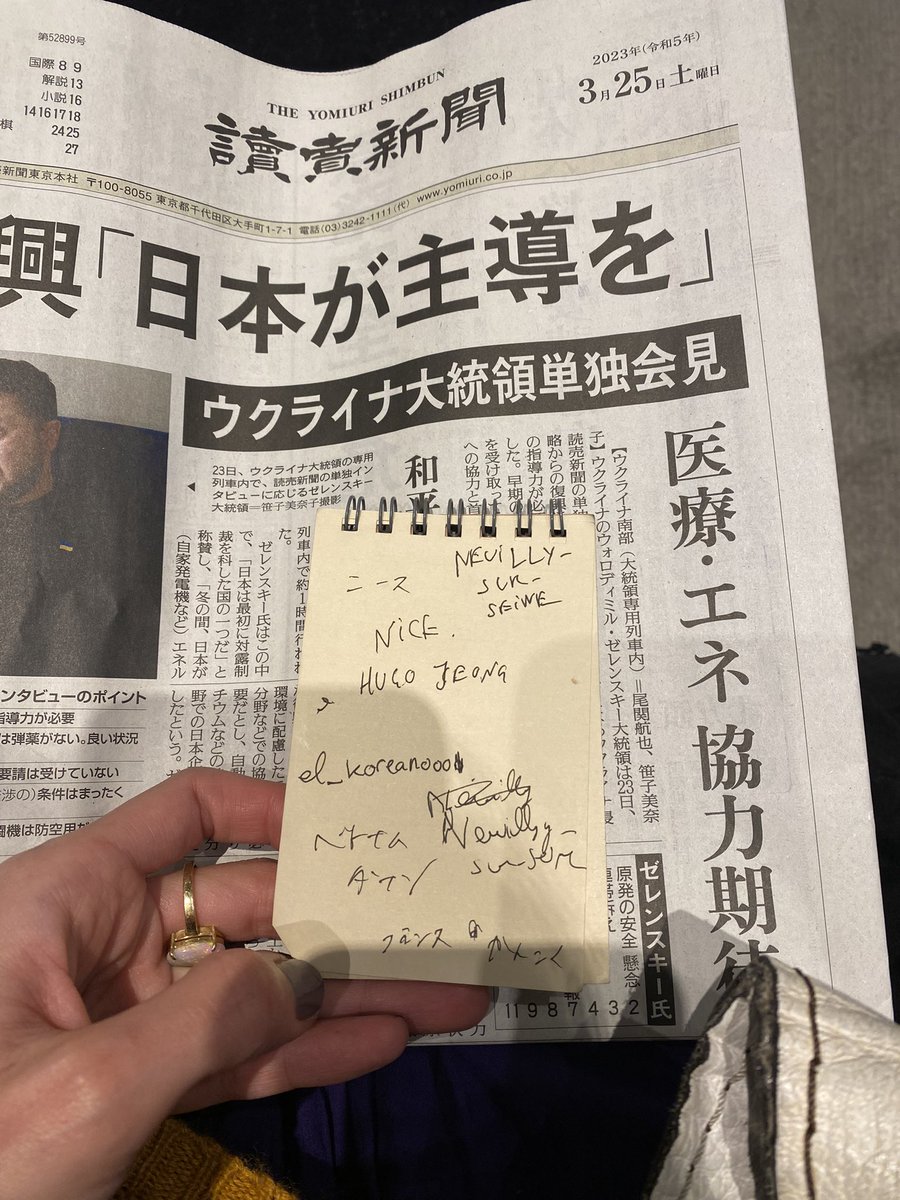 第52899号
国際 8 9
解説 13
小説 16
14161718
棋 2425
27
THE YOMIURI SHIMBUN
讀賣新聞
2023年(令和5年)
3月25日土曜日
新聞東京本社 〒100-8055 東京都千代田区大手町1-7-1 電話(03)3242-1111(代) www.yomiuri.co.jp
興「日本が主導を」
ウクライナ大統領単独会見
医療・エネ 協力期待
23日、ウクライナ大統領の専用
列車内で、読売新聞の単独イン
タビューに応じるゼレンスキー
大統領=笹子美奈子撮影
和平
【ウクライナ南部(大統領専用列車内)=尾関航也、笹子美奈
子】ウクライナのウォロディミル・ゼレンスキー大統領は23日、
読売新聞の単独
略からの復興
の指導力が必
した。早期の
を受け取って
への協力と首
列車内で約1時間行われ
た。
ゼレンスキー氏はこの中
で、「日本は最初に対露制
裁を科した国の一つだ」と
称賛し、「冬の間、日本が
(自家発電機など)エネル
環境に配慮した
分野などでの協
要だとし、自動
チウムなどの
野での日本企
したという。
ンタビューのポイント
指導力が必要
は弾薬がない。良い状況
要請は受けていない
渉の)条件はまったく
闘機は防空用だ
ゼレンスキー氏
原発の安全 懸念
11 9 8 7 4 3 2
ニース
NEUILLY-
SUR-
SEINE
NICE.
HUGO JEONG
el_koreanoool
Neuilly-
sur-seine